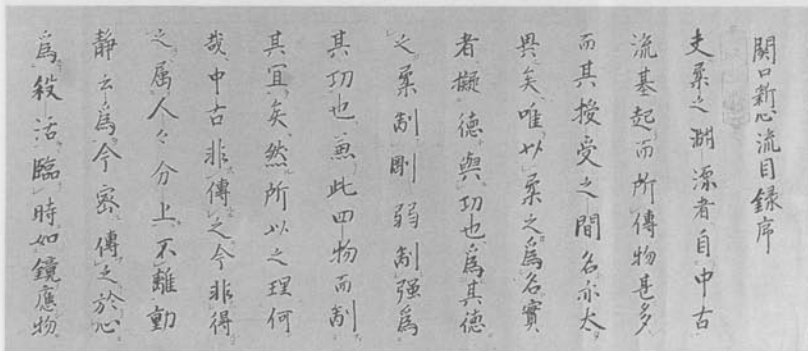 関口新心流目録序
夫柔之渕源者自中古
流基起而所傳物甚多
而其授受之間名亦太
異矣唯以柔之爲名實
者擬德與功也爲其德
之柔制剛弱制强爲
其功也兼此四物而制
其宜矣然所以之理何
哉中古非傳之今非得
之属人々分上不離動
静云爲今密傳之於心
爲殺活臨時如鏡應物